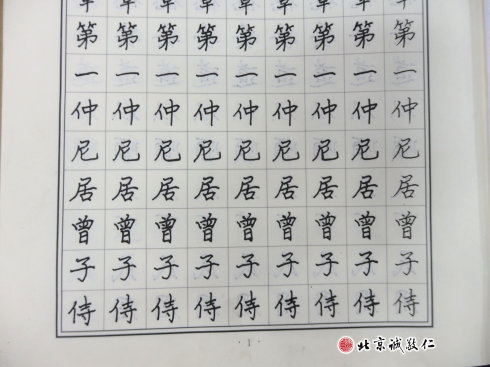 章章章章章章章章章
第第第第第第第第第
一一一一一一一一一
仲仲仲仲仲仲仲仲仲
尼尼尼尼尼尼尼尼尼
居居居居居居居居居
曾曾曾曾曾曾曾曾曾
子子子子子子子子子
侍侍侍侍侍侍侍侍侍
· 1 ·
北京诚敬仁